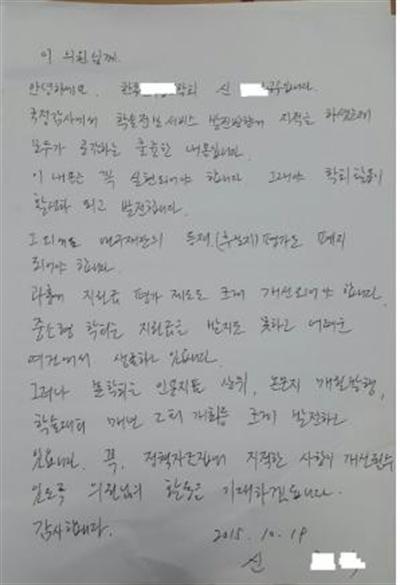 이 의원님께.
안녕하세요. 한국 학회 신 교수입니다.
국정감사에서 학술정보서비스 발전방향에 지적을 하셨는데
모두가 공감하는 훌륭한 내용입니다.
이 내용은 꼭 실현되어야 합니다. 그래야 학회활동이
활성화 되고 발전합니다.
그 외에도 연구재단의 등재(후보지)평가도 폐지
되어야 합니다.
과총의 지원금 평가 제도도 크게 개선되어야 합니다.
중소형 학회는 지원금을 받지도 못하고 어려운
여건에서 생존하고 있습니다.
그러나 본학회는 인용지표 상위, 논문지 개월발행,
학술대회 매년 2회 개최를 크게 발전하고
있습니다. 꼭, 정책자료집에 지적한 사항이 개선될수
있도록 의원님의 활동을 기대하겠습니다.
감사합니다.
2015. 10. 19
신